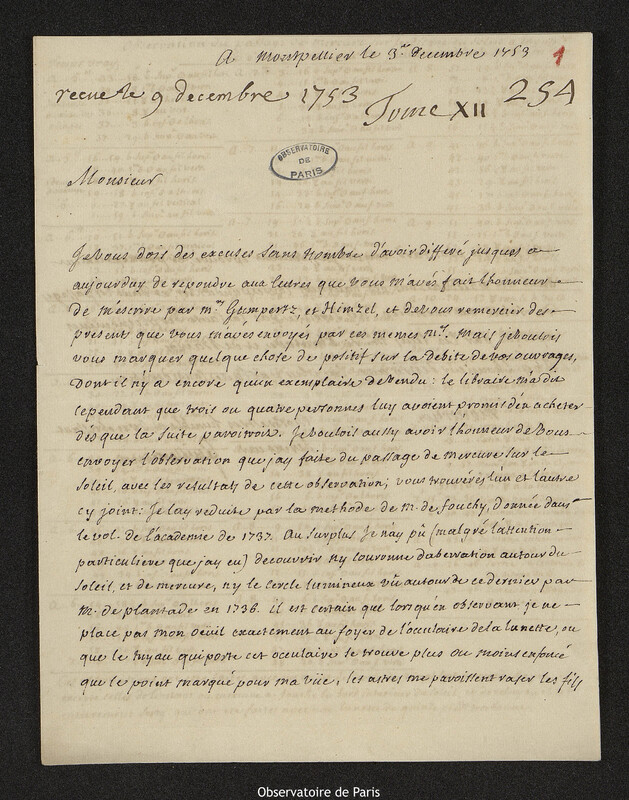 A Montpellier le 3.e decembre 1753
1
recue le 9 decembre 1753
Tome XII
254
OBSERVATOIRE
DE
PARIS
Monsieur
Je vous dois des excuses sans nombre d'avoir differé jusques a
aujourduy de repondre aux lettres que vous m'avés fait lhonneur
de m'escrire par mrs Gumpertz, et Hinzel, et de vous remercier des
present que vous m'avés envoyés par ces memes mrs. Mais je voulois
vous marquer quelque chose de positif sur la debite de vos ouvrages,
Dont il n'y a encore qu'un exemplaire de vendu: le libraire m'a dit
cependant que trois ou quatre personnes luy avoient promis d'en acheter
dès que la suite paroitroit. Je voulois aussy avoir lhonneur de vous
envoyer l'observation que jay faite du passage de mercure sur le
soleil, avec les resultats de cette observation; vous trouverés l'un et l'autre
cy joint: Je lay reduite par la methode de M. de fouchy, donnée dans
le vol. de l'academie de 1737. Au surplus Je n'ay pû (malgré l'attention
particuliere que jay eu) decouvrir ny couronne d'aberration autour du
soleil, et de mercure, ny le cercle lumineux vû autour de ce dernier par
M. de plantade en 1736. il est certain que lorsqu'en observant je ne
place pas mon oeuil exactement au foyer de l'oculaire de la lunette, ou
que le tuyau qui porte cet oculaire se trouve plus ou moins enfoncé
que le point marqué pour ma vûe, les astres me paroissent raser les fils
Observatoire de Paris